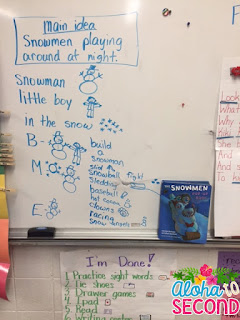 Main idea
Snowmen playing
around at night.
snowman
little boy
in the snow
B-
build
a
snowman
M:
sled
snowball fight
sledding
baseball
hot cocoa
clowns
racing
snow angels
E:
SNOWMEN
AT NIGHT
Look
What
Why
she
But
And
And
To
I'm Done!
1. Practice sight words
2. Tie shoes
3. Drawer games
4. ipad
5. Read
6. Writing center
Aloha to
SECOND